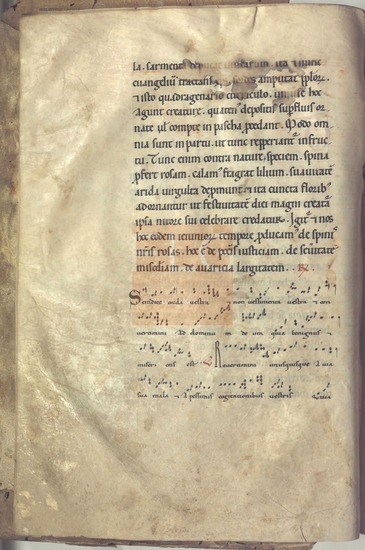 la. sarmenta ita & nunc
evangeliū tractatū amputat
& isto quadragenario curriculo.
agunt creature. quatenꝰ depositis supfluis or
nate ul compte in pascha pcedant. Modo om
nia sunt in partu. ut tunc repperiant in fruc
tu. Tunc enim contra nature speciem. spina
pfert rosam. calam fragrat lilium. suavitatē
arida virgulta depmunt & ita cuncta florib
adornantur ut festivitatē diei magni creatā
ipsa nature sui celebrare credatur. Igit & nos
hoc eodem ieiunior tempore pducam de spinis
nris rosas. hoc ē de pctis iusticiam. de sevitate
miscdiam. de avaricia largitatem. R
Scindite corda vestra & non vestimenta vestra & con
vertimini ad dominum deum quia benignus &
misericors est V Revertimini unusquisque a via
sua mala & a pessimis cogitationibus vestris Quia